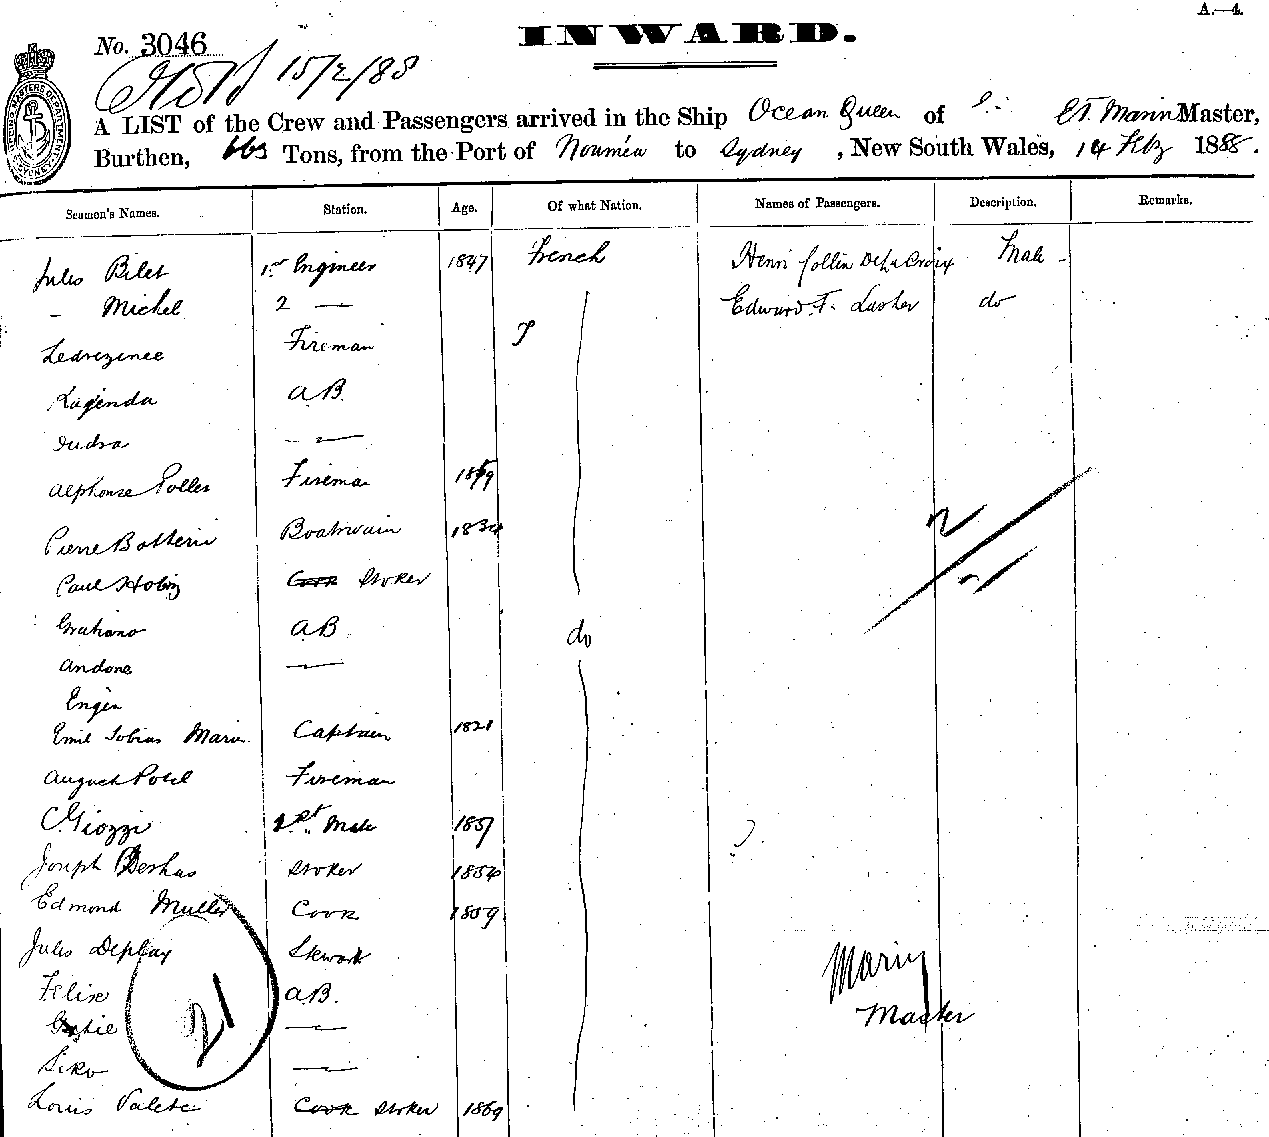 A.—4.
INWARD.
No. 3046
15/2/88
A LIST of the Crew and Passengers arrived in the Ship Ocean Queen of E.T. Marin Master,
Burthen, Tons, from the Port of Nouméa to Sydney, New South Wales, 14 Feby 1888.
Seamen's Names. Station. Age. Of what Nation. Names of Passengers. Description. Remarks.
Jules Bilet 1st Engineer 1847 French Henri Collin De La Croix Male -
- Michel 2 — Edward F. Lasher do
Fireman
A.B.
—
Alphonse Fireman
Pierre Botterie Boatswain 1834
Paul Cook Stoker
Gratiano A.B. do
Andone —
Engen
Emil Tobias Marin Captain 1821
August Potel Fireman
C. Giozzi Mate 1857
Joseph Stoker 1854
Edmond Muller Cook 1859
Jules Deplay Steward
Felise A.B.
—
Siko —
Louis Palete Cook Stoker 1869
21
Marin
Master